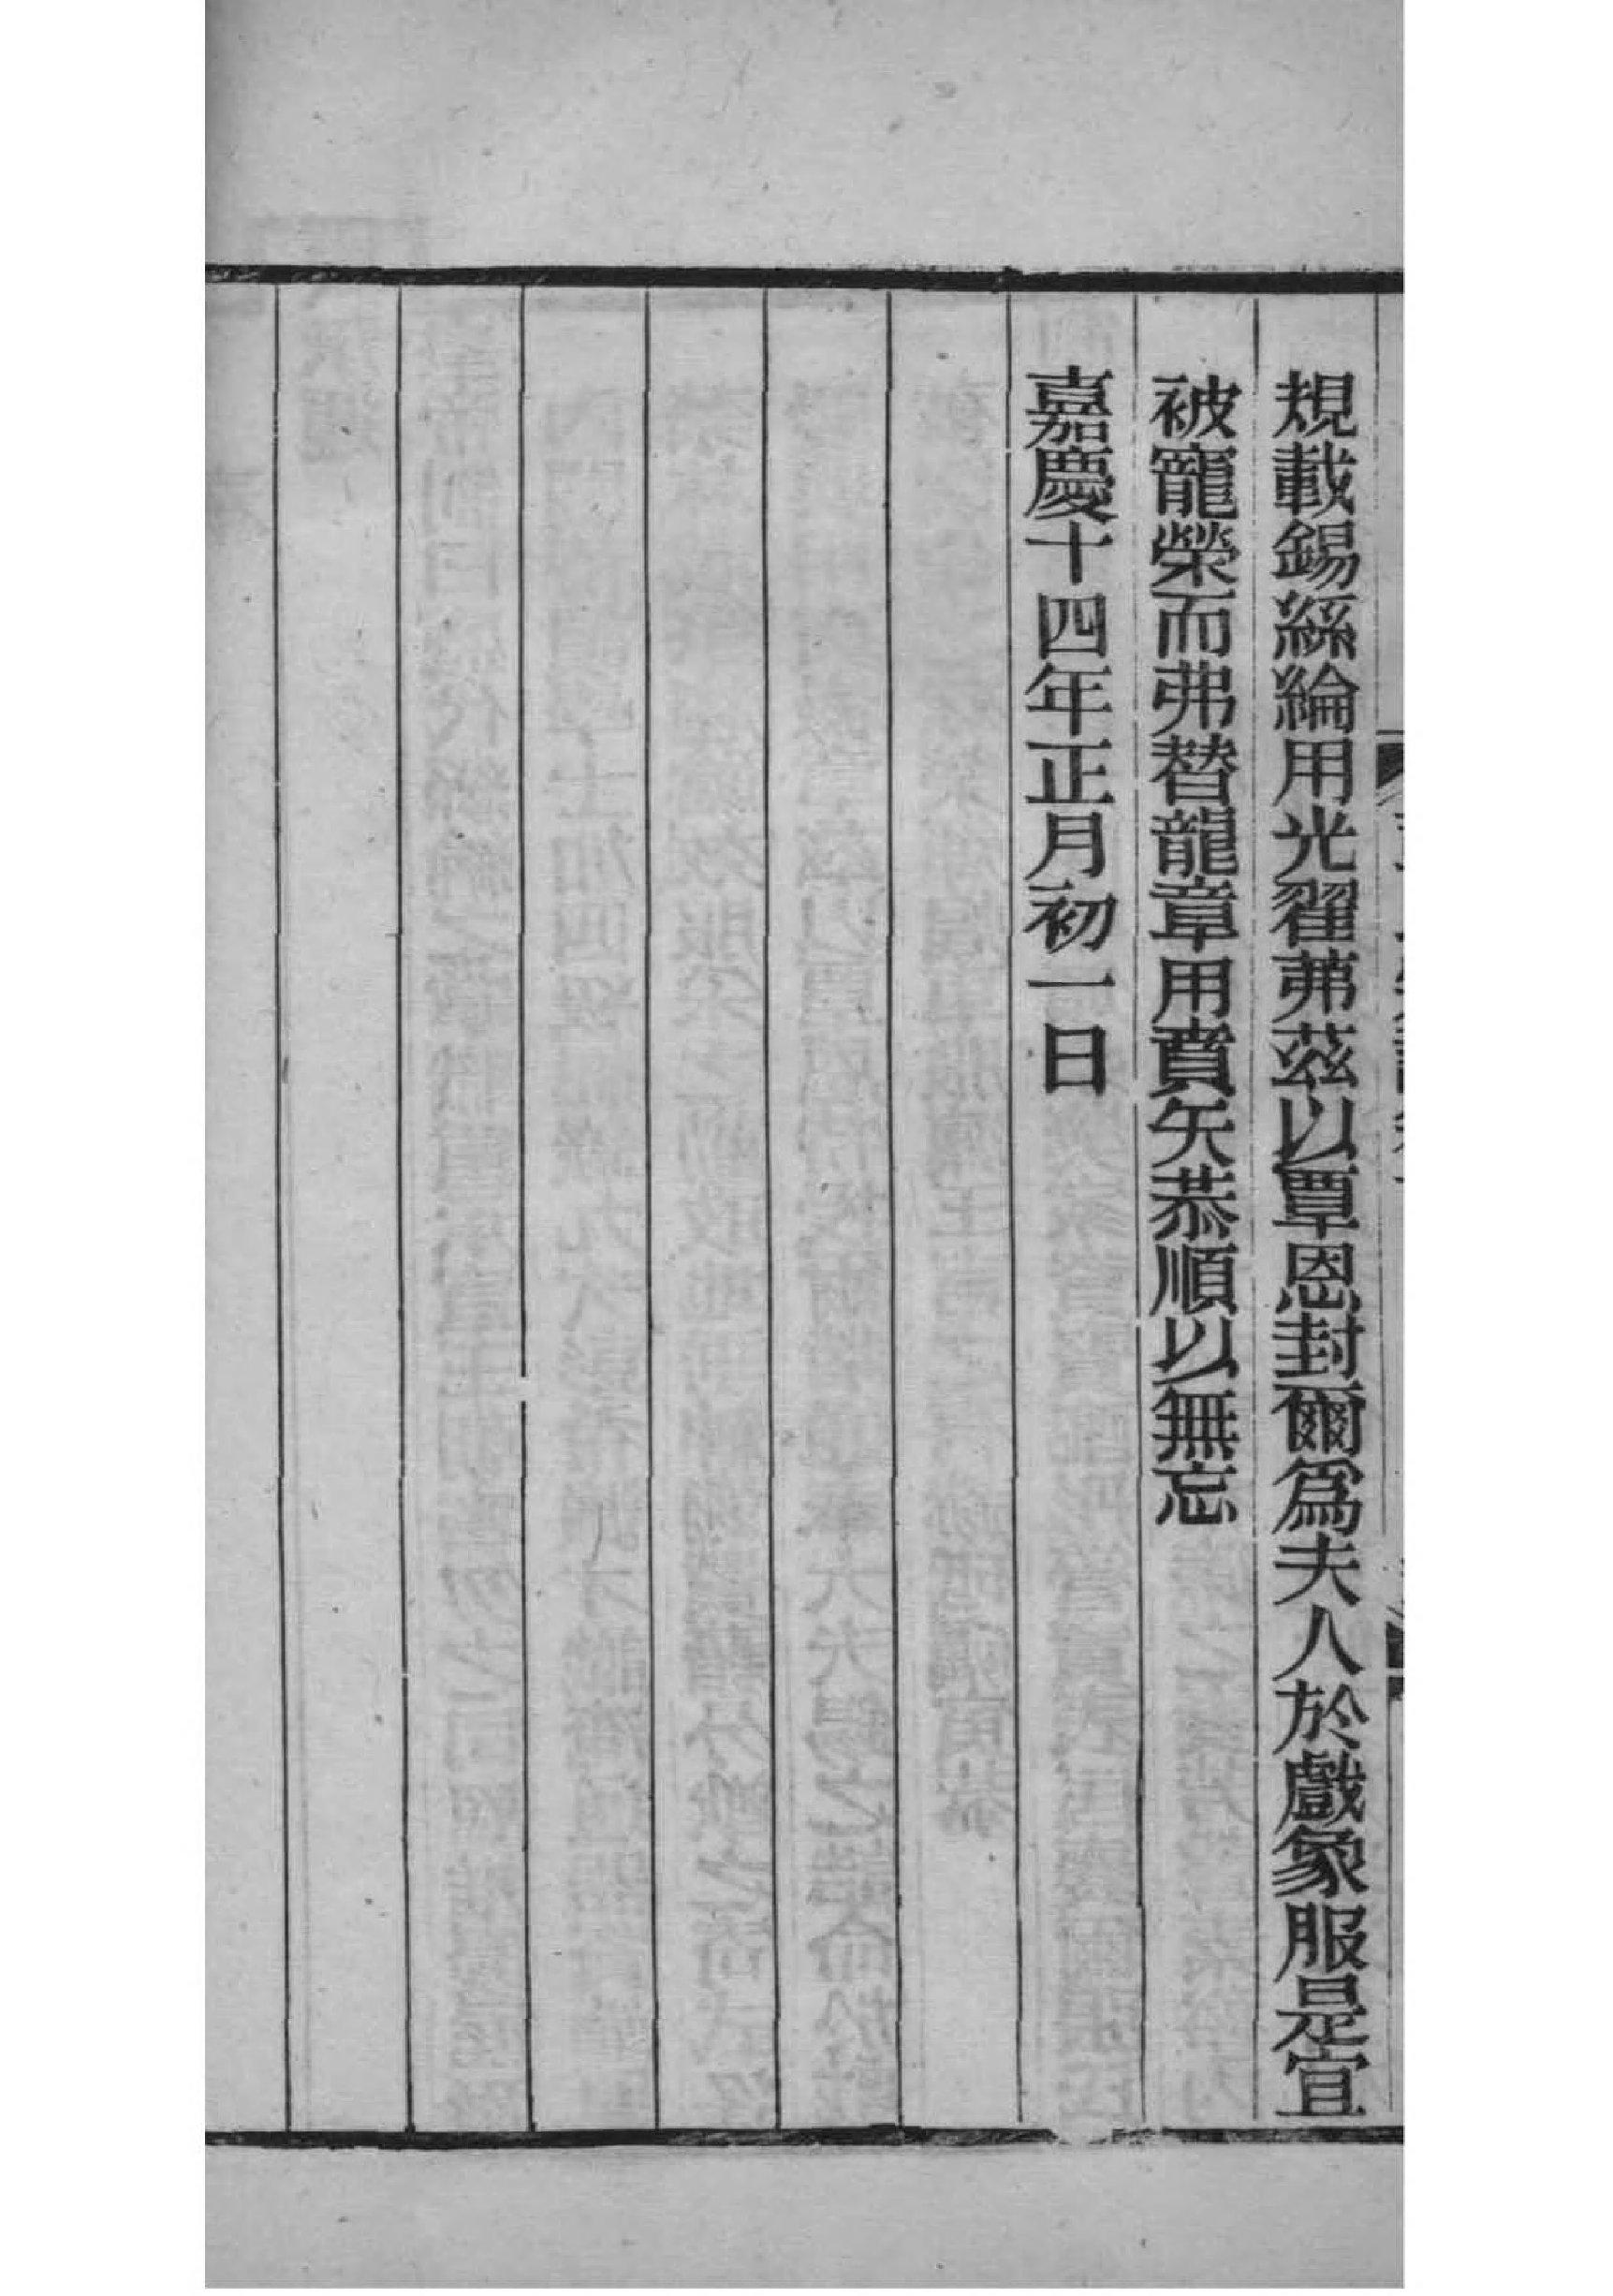 規載錫絲綸用光翟茀茲以覃恩封爾爲夫人於戲象服是宜
被寵榮而弗替龍章用賁矢恭順以無忘
嘉慶十四年正月初一日